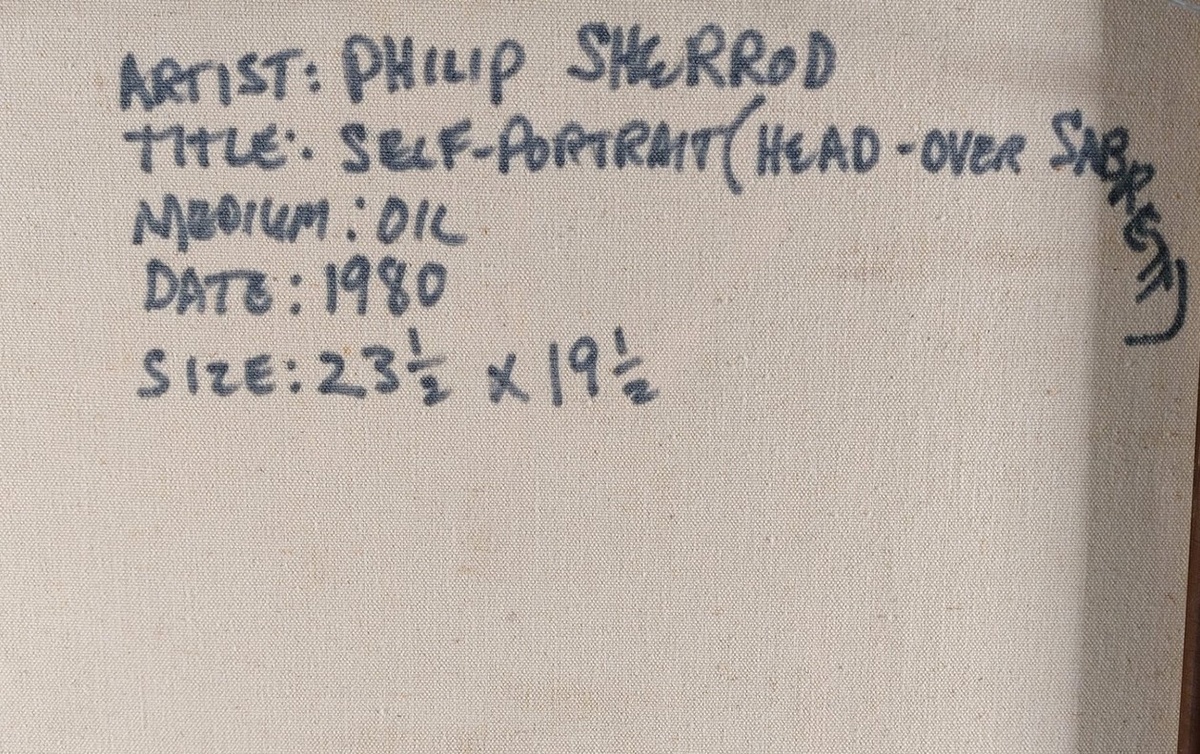 ARTIST: PHILIP SHERROD
TITLE: SELF-PORTRAIT (HEAD-OVER SABRETT)
MEDIUM: OIL
DATE: 1980
SIZE: 23 1/2 x 19 1/2